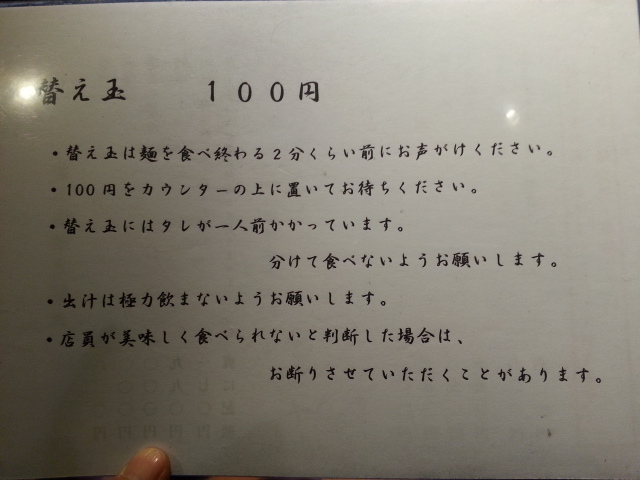 替え玉　　１００円
・替え玉は麺を食べ終わる２分くらい前にお声がけください。
・100円をカウンターの上に置いてお待ちください。
・替え玉にはタレが一人前かかっています。
分けて食べないようお願いします。
・出汁は極力飲まないようお願いします。
・店員が美味しく食べられないと判断した場合は、
お断りさせていただくことがあります。